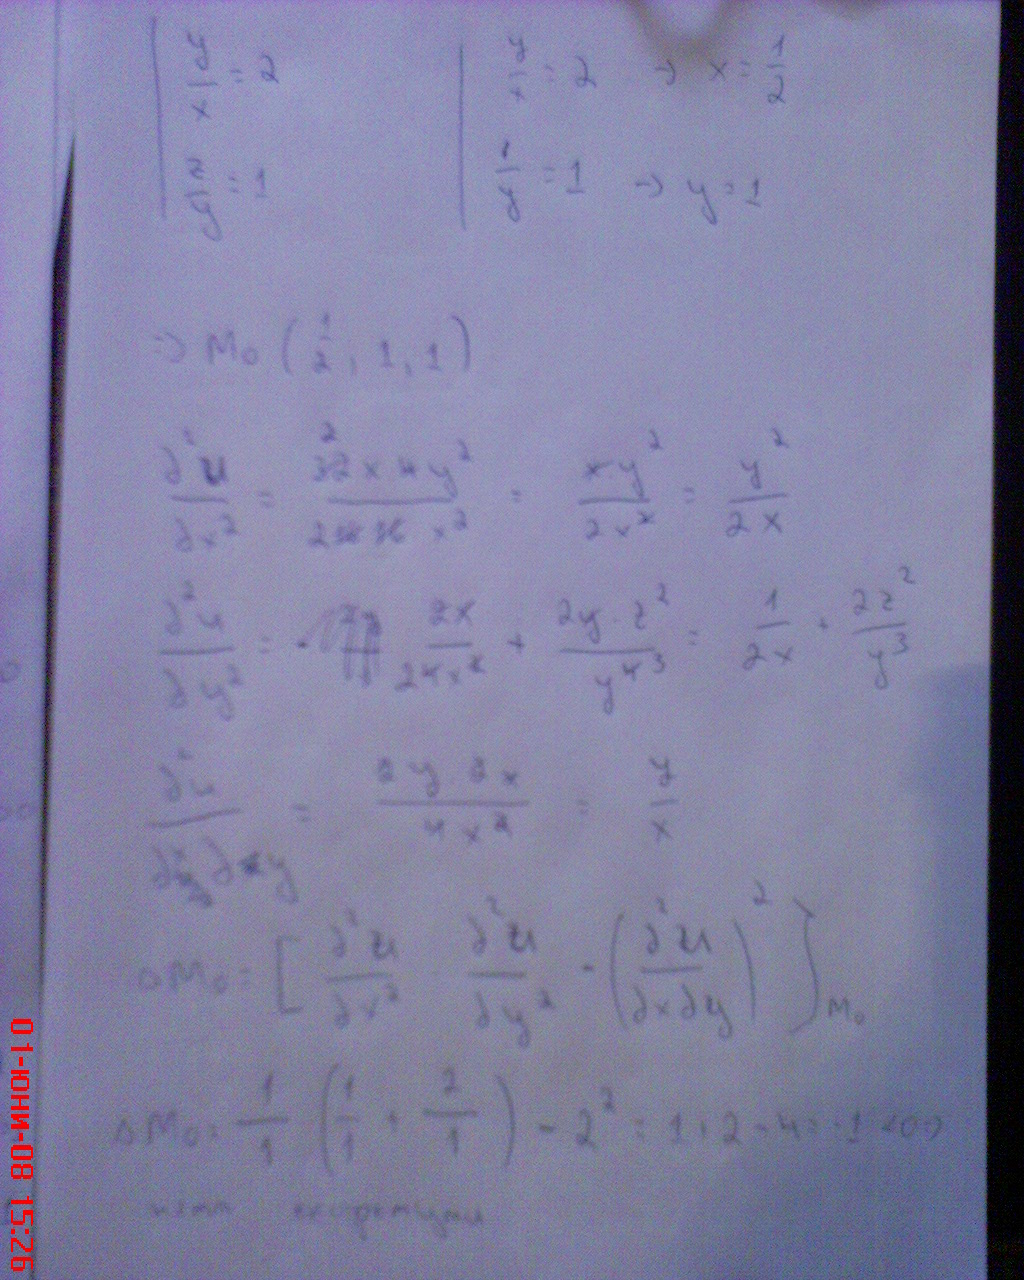 y/x = 2    y/x = 2 → x = 1/2
z/y = 1    1/y = 1 → y = 1
⇒ M₀ (1/2, 1, 1)
∂²u/∂x² = = xy²/2x² = y²/2x
∂²u/∂y² = + 2y·z²/y⁴ ³ = 1/2x + 2z²/y³
∂²u/ = 2y 2x/4x² = y/x
ΔM₀ = [∂²u/∂x² ∂²u/∂y² - (∂²u/∂x∂y)²]M₀
ΔM₀ = 1/1 (1/1 + 2/1) - 2² = 1+2-4 = -1 <0 ⇒
няма екстремуми
01-ЮНИ-08 15:26